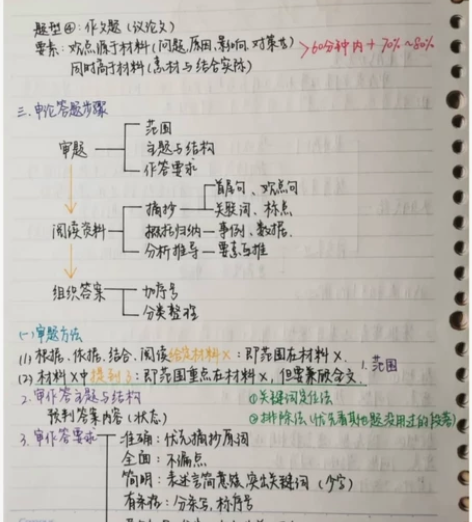 题型④:作文题(议论文)
要素:观点源于材料(问题、原因、影响、对策等) >60分钟内+70%~80%
同时高于材料(素材与结合实际)
三.申论答题步骤
审题
范围
主题与结构
作答要求
阅读资料
摘抄
首尾句、观点句
关键词、标点
概括归纳 事例、数据.
分析推导 要素互推
组织答案
加序号
分类整理
(一)审题方法
(1)根据、依据、结合、阅读给定材料X:即范围在材料X.
(2)材料X中提到了:即范围重点在材料X,但要兼顾全文.
1.范围
2.审作答主题与结构
预判答案内容(状态)
①关键词定位法
②排除法(优先看其他题没用过的段落)
3.审作答要求
准确:优先摘抄原词
全面:不漏点
简明:表述言简意赅,突出关键词(少字)
有条理:分条写,标序号